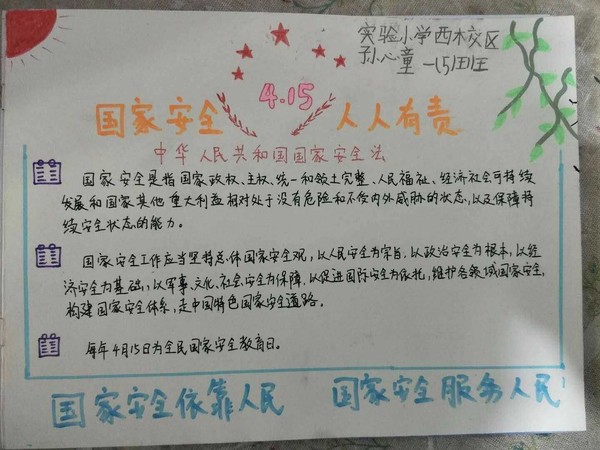 实验小学西校区
孙心童 一(5)班
4.15
国家安全 人人有责
中华人民共和国国家安全法
国家安全是指国家政权、主权、统一和领土完整、人民福祉、经济社会可持续
发展和国家其他重大利益相对处于没有危险和不受内外威胁的状态,以及保障持
续安全状态的能力。
国家安全工作应当坚持总体国家安全观,以人民安全为宗旨,以政治安全为根本,以经
济安全为基础,以军事、文化、社会安全为保障,以促进国际安全为依托,维护各领域国家安全,
构建国家安全体系,走中国特色国家安全道路。
每年4月15日为全民国家安全教育日。
国家安全依靠人民 国家安全服务人民